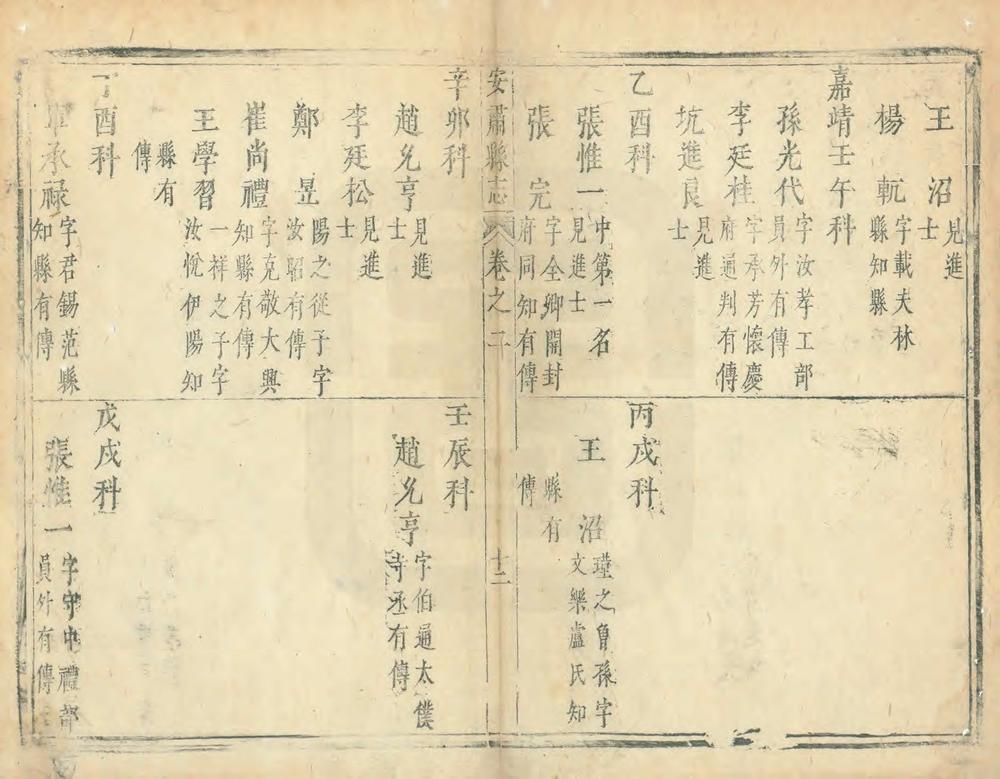 王沼 見進士
楊䡄 字載夫林縣知縣
嘉靖壬午科
孫光代 字汝孝工部員外有傳
李廷桂 字承芳懷慶府通判有傳
坑進良 見進士
乙酉科
張惟一 中第一名見進士
張完 字全卿開封府同知有傳
丙戌科
王沼 瓘之曾孫字文樂盧氏知縣有傳
安肅縣志 卷之二 十二
辛卯科
趙允亨 見進士
李廷松 見進士
鄭昱 陽之從子字汝昭有傳
崔尚禮 字克敬大興知縣有傳
王學習 一祥之子字汝悅伊陽知縣有傳
丁酉科
承祿 字君錫范縣知縣有傳
壬辰科
趙允亨 字伯通太僕寺丞有傳
戊戌科
張惟一 字守中禮部員外有傳